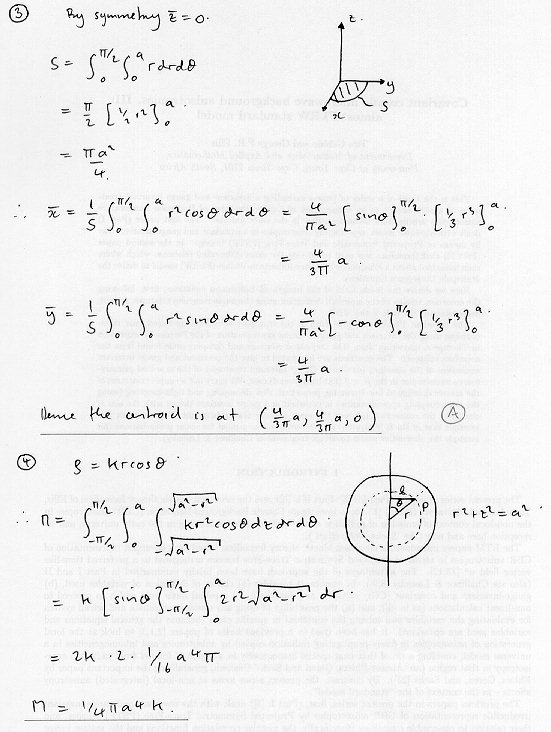 ③ By symmetry z̄ = 0.
z
y
x
S
S = ∫₀^{π/2} ∫₀^a r dr dθ
= π/2 [½ r²]₀^a
= πa²/4.
∴ x̄ = 1/S ∫₀^{π/2} ∫₀^a r² cosθ dr dθ = 4/πa² [sinθ]₀^{π/2} . [⅓ r³]₀^a .
= 4/3π a .
ȳ = 1/S ∫₀^{π/2} ∫₀^a r² sinθ dr dθ = 4/πa² [-cosθ]₀^{π/2} [⅓ r³]₀^a
= 4/3π a .
Hence the centroid is at (4/3π a, 4/3π a, 0) Ⓐ
④ ρ = kr cosθ .
∴ M = ∫_{-π/2}^{π/2} ∫₀^a ∫_{-√(a²-r²)}^{√(a²-r²)} kr² cosθ dz dr dθ .
θ
r
P
r² + z² = a²
= k [sinθ]_{-π/2}^{π/2} ∫₀^a 2r² √(a²-r²) dr .
= 2k . 2 . 1/16 a⁴ π
M = 1/4 π a⁴ k .